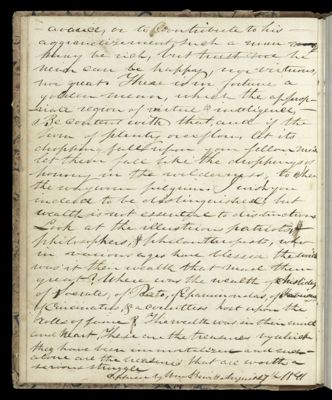 avarice, or to contribute to his
aggrandizement, such a man
may be rich, but trust me he
never can be happy, nor virtuous,
nor great. There is in fortune a
golden mean, which is the approp-
riate region of virtue & intelligence,
Be content with that, and if the
horn of plenty overflow, let its
droppings fall upon your fellow men
let them fall like the droppings of
honey in the wilderness, to cheer
the wayworn pilgrim. I wish you
indeed to be distinguished but
wealth is not essential to distinction
Look at the illustrious patriots,
philosophers, & philanthropists, who
in various ages have blessed the world
was it their wealth that made them
great? Where was the wealth of Aristides,
of Socrates, of Plato, of Epaminondas, of
of Cincinnatus, & a countless host upon the
rolls of fame? The wealth was in their mind
and heart. These are the treasures by which
they have been immortalized and such
alone are the treasures that are worth a
serious struggle
1841